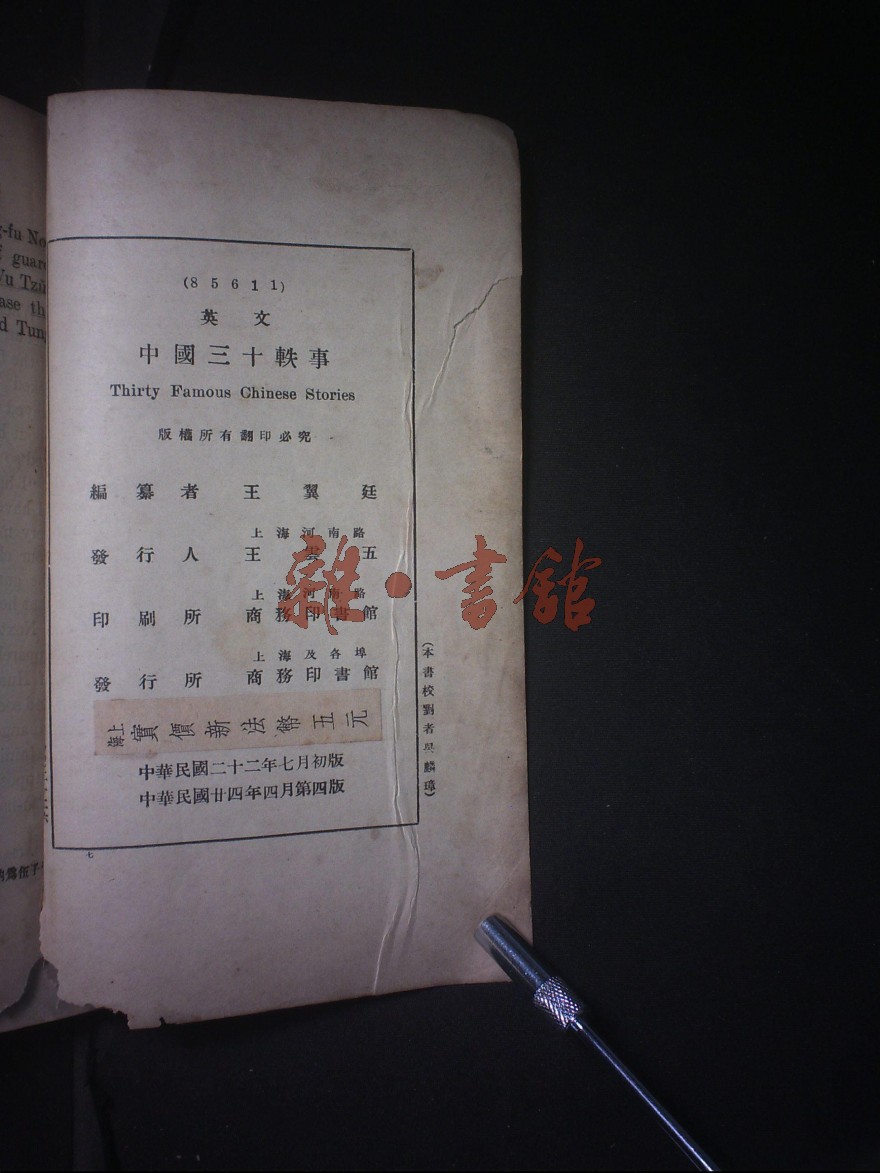 -fu No
guar
Vu Tzŭ
ase th
d Tung
(85611)
英文
中國三十軼事
Thirty Famous Chinese Stories
版權所有翻印必究
編纂者 王翼廷
上海河南路
發行人 王雲五
上海河南路
印刷所 商務印書館
上海及各埠
發行所 商務印書館
上海實價新法幣五元
中華民國二十二年七月初版
中華民國廿四年四月第四版
(本書校對者吳麟瑋)
七
雜·書館